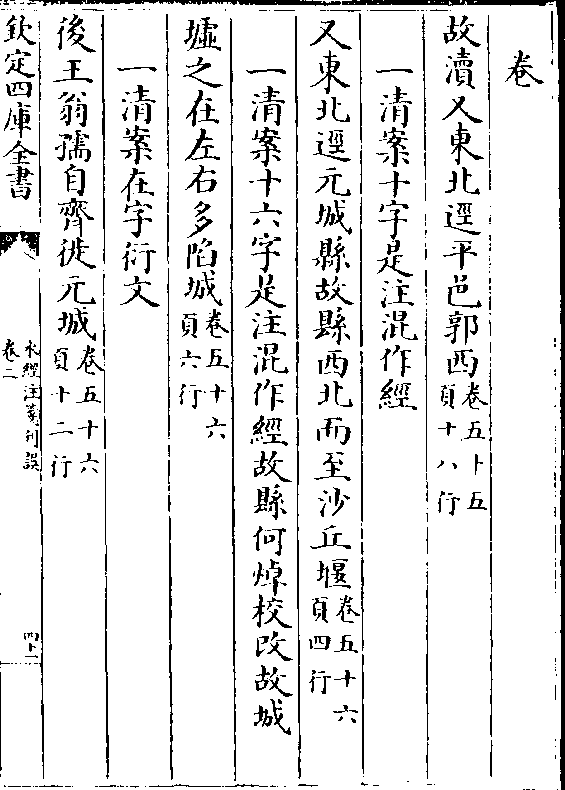 卷
故瀆又東北逕平邑郭西卷五十五頁十八行
一清案十字是注混作經
又東北逕元城縣故縣西北而至沙丘堰卷五十六頁四行
一清案十六字是注混作經故縣何焯校改故城
墟之在左右多陷城卷五十六頁六行
一清案在字衍文
後王翁孺自齊徙元城卷五十六頁十二行
欽定四庫全書
水經注箋刊誤
卷二
四十一